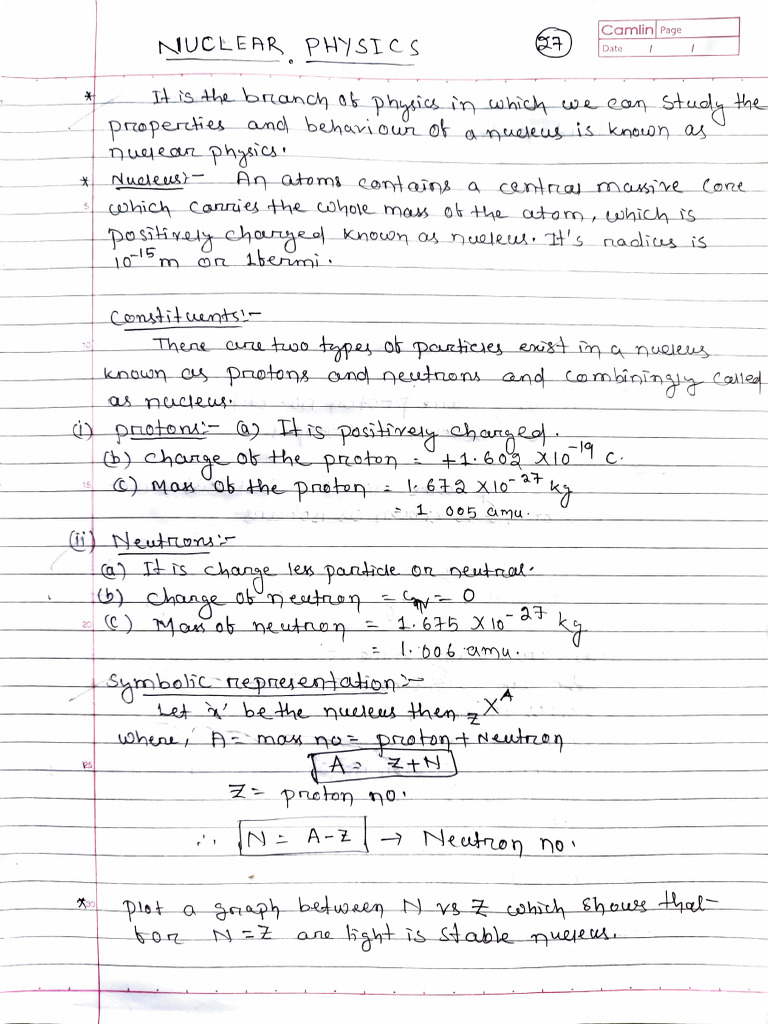 NUCLEAR PHYSICS
27
Camlin Page
Date / /
* It is the branch of physics in which we can study the
properties and behaviour of a nucleus is known as
nuclear physics.
* Nucleus:- An atoms contains a central massive core
5 which carries the whole mass of the atom, which is
positively charged known as nucleus. It's radius is
10⁻¹⁵m or 1fermi.
Constituents:-
10 There are two types of particles exist in a nucleus
known as protons and neutrons and combiningly called
as nucleus.
(i) protons:- (a) It is positively charged.
(b) charge of the proton = +1.602 X10⁻¹⁹ C.
15 (c) Mass of the proton = 1.672 X10⁻²⁷ kg
= 1.005 amu.
(ii) Neutrons:-
(a) It is charge less particle or neutral.
(b) charge of neutron = = 0
20 (c) Mass of neutron = 1.675 X10⁻²⁷ kg
= 1.006 amu.
Symbolic representation:-
Let 'x' be the nucleus then zXᴬ
where, A = mass no = proton + Neutron
25 A = Z+N
Z = proton no.
∴ N = A-Z → Neutron no.
*30 plot a graph between N vs Z which shows that
for N=Z are light is stable nucleus.